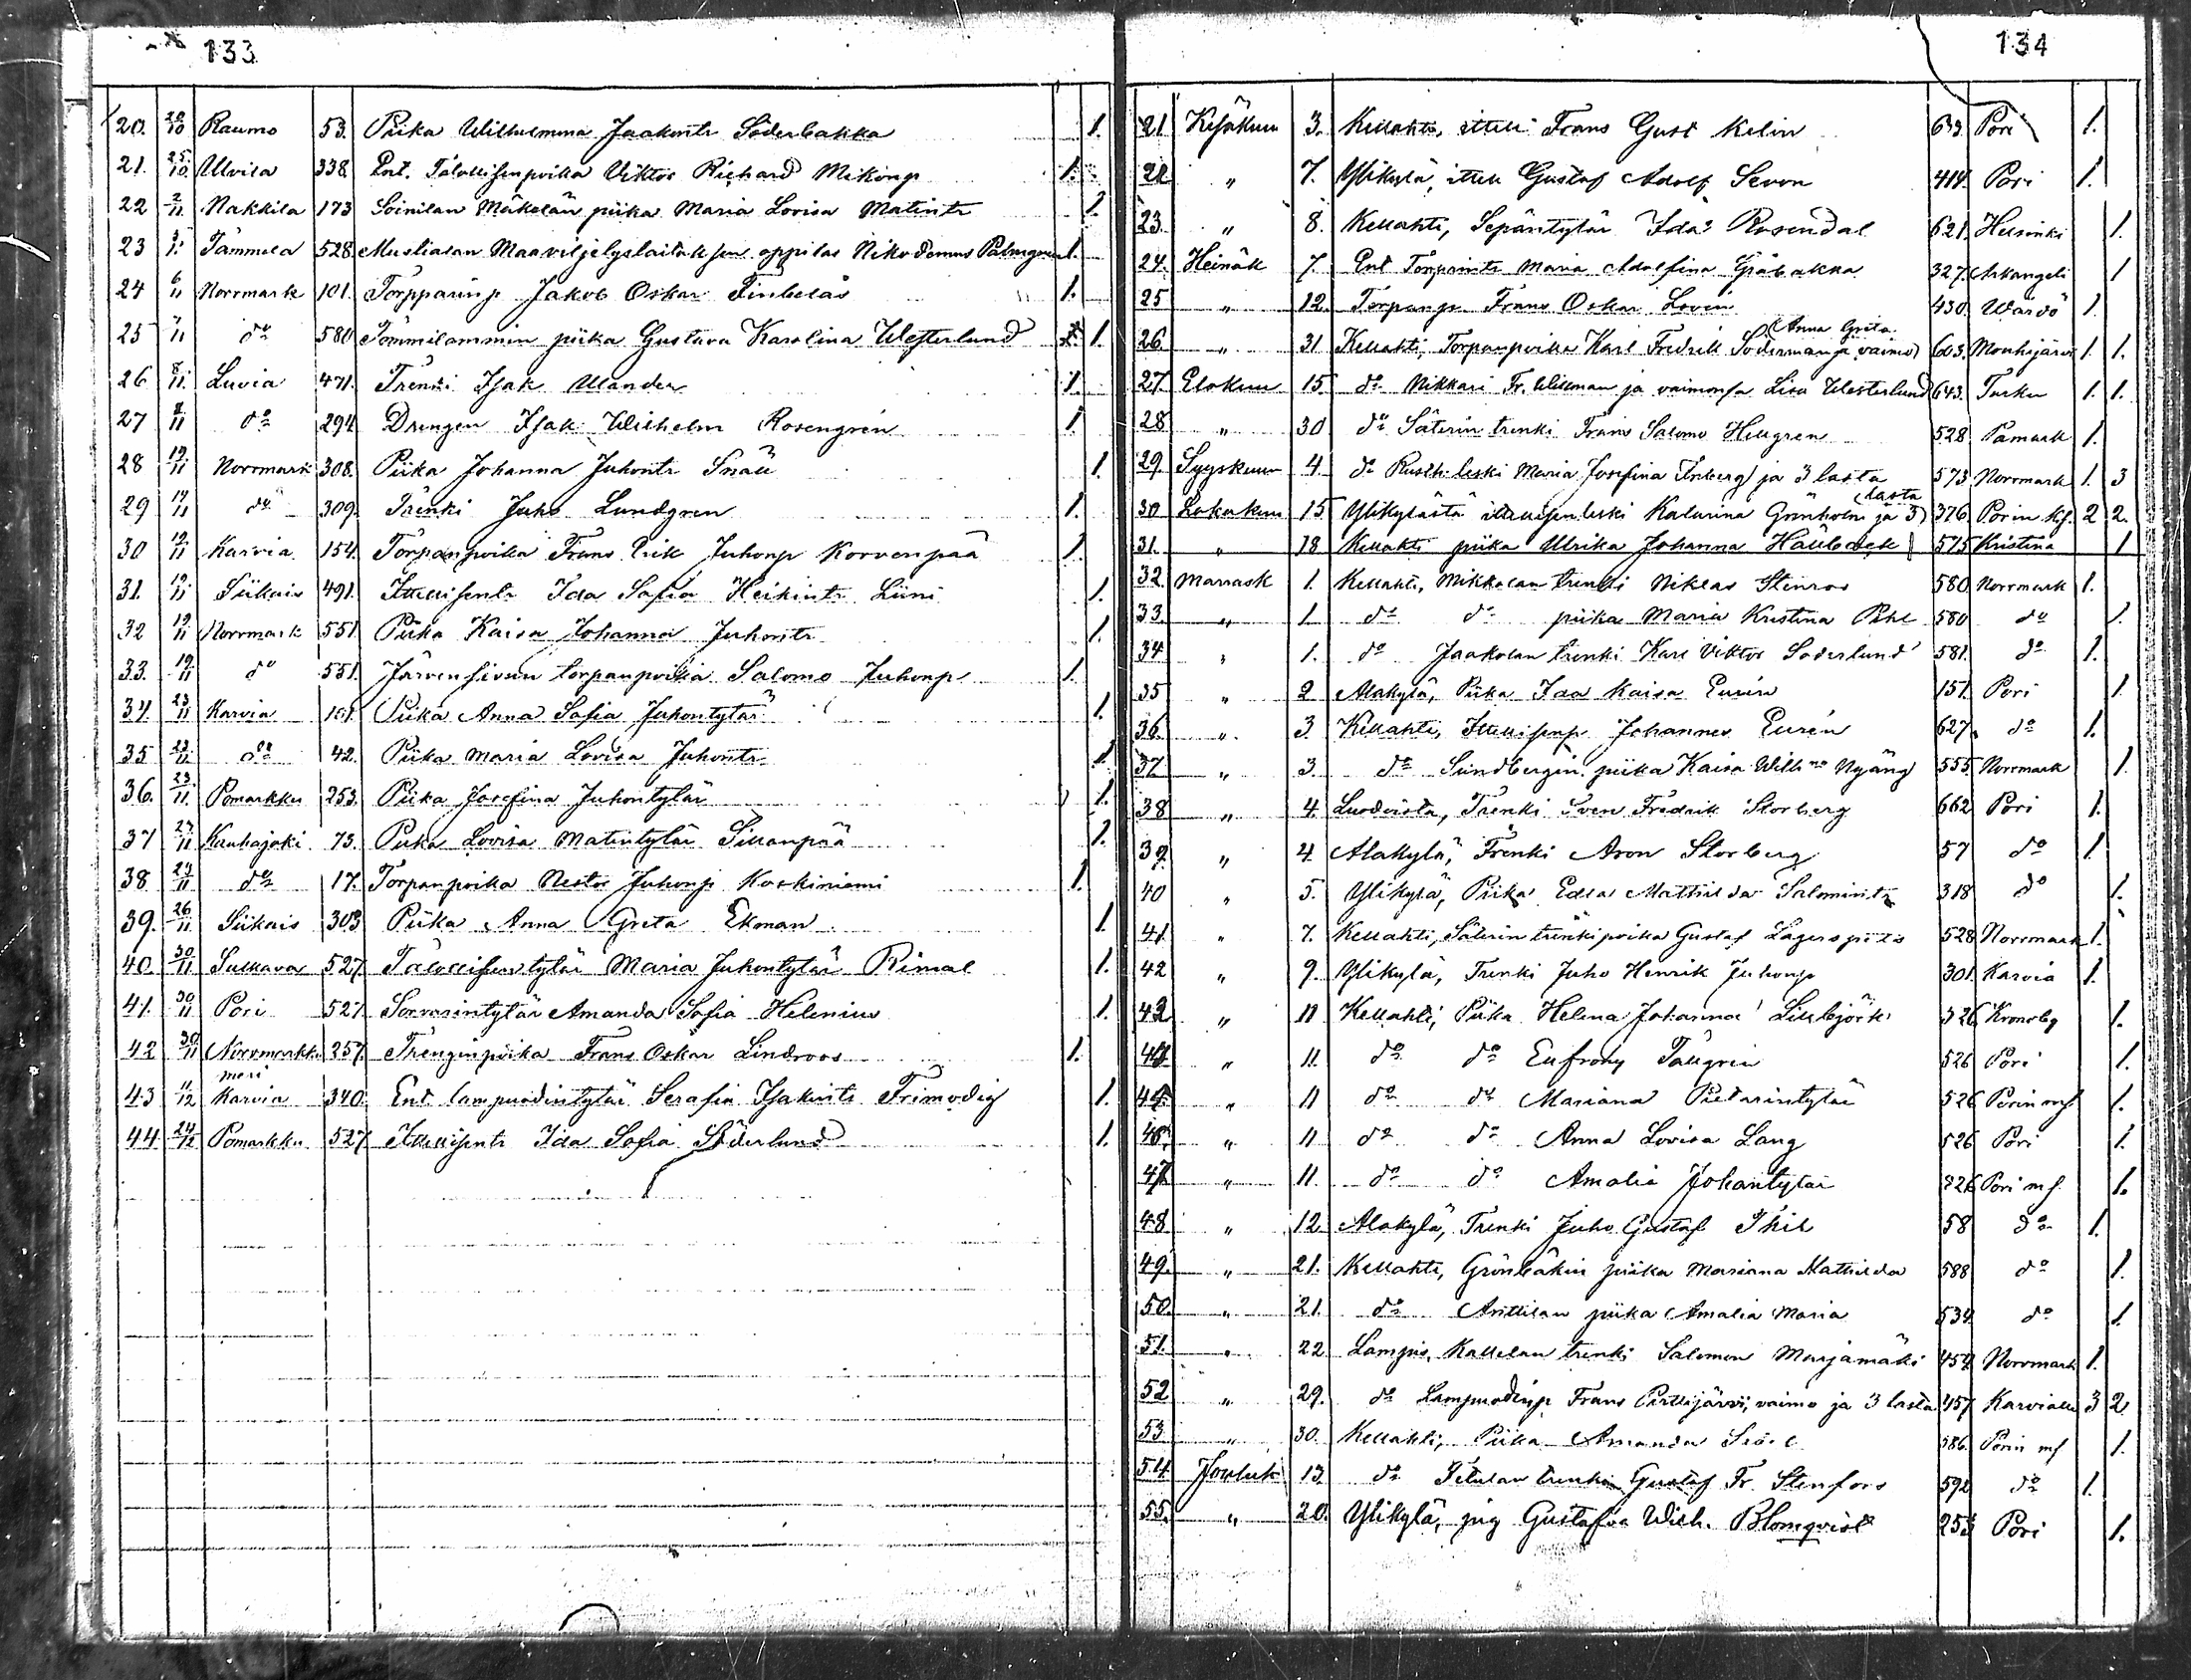 133
20. 20/10 Raumo 53. Piika Wilhelmina Jaakontr Söderbakka 1.
21. 25/10 Ulvila 338 Ent. Talollisenpoika Viktor Richard Mikonp 1.
22 2/11 Nakkila 173 Soinilan Mäkelän piika Maria Lovisa Matintr 1.
23 Tammela 528 Mustialan Maaviljelyslaitoksen oppilas Nikodemus Palmgren 1.
24 6/11 Norrmark 101. Torpparinp Jakob Oskar Finbelas 1.
25 7/11 do 580 Tommilammin piika Gustava Karolina Westerlund 1.
26 8/11 Luvia 471. Trenki Isak Ulander 1.
27 8/11 do 294 Drengen Isak Wilhelm Rosengrén 1
28 19/11 Norrmark 308. Piika Johanna Juhontr Snäll 1.
29 19/11 do 309. Trenki Juho Lundgren 1.
30 19/11 Karvia 154. Torpanpoika Frans Erik Juhonp Korvenpää 1.
31. 19/11 Siikais 491. Itsellisentr Ida Sofia Heikintr Liini 1.
32 19/11 Norrmark 551 Piika Kaisa Johanna Juhontr 1.
33. 19/11 do 551. Järvensivun torpanpoika Salomo Juhonp 1.
34. 23/11 Karvia 101. Piika Anna Sofia Juhontytär 1.
35 23/11 do 42. Piika Maria Lovisa Juhontr 1
36. 23/11 Pomarkku 253. Piika Josefina Juhontytär 1.
37 23/11 Kauhajoki 73. Piika Lovisa Matintytär Sillanpää 1.
38 23/11 do 17. Torpanpoika Nestor Juhonp Koskiniemi 1.
39. 26/11 Siikais 303 Piika Anna Greta Ekman 1.
40. 30/11 Sulkava 527 Talollisentytär Maria Juhontytär Rimal 1.
41. 30/11 Pori 527 Sorvarintytär Amanda Sofia Helenius 1.
42 30/11 Norrmarkku 257. Trenginpoika Frans Oskar Lindroos 1.
43 11/12 Karvia 340. Ent lampuodintytär Serafia Isakintr Frimodig 1.
44 24/12 Pomarkku 527 Itsellisentr Ida Sofia Söderlund 1.
134
21 Kesäkuu 3. Kellahti, itsell Frans Gust Kelin 633. Pori 1.
22 „ 7. Ylikylä, itsell Gustaf Adolf Sevon 414. Pori 1.
23. „ 8. Kellahti, Sepäntytär Ida Rosendal 621. Helsinki 1.
24. Heinäk 7. Ent Torparintr Maria Adolfina Gräbakka 327. Arkangeli 1
25 „ 12. Torpanp. Frans Oskar Lovén 430. Wardö 1.
26. „ 31 Kellahti, Torpanpoika Karl Fredrik Söderman ja vaimo Anna Greta 603. Mouhijärvi 1. 1.
27. Elokuu 15. do Nikkari Fr. Willman ja vaimonsa Lisa Westerlund 643. Turku 1. 1.
28 „ 30 do Säterin trenki Frans Salomo Hellgren 528. Pamark 1.
29. Syyskuu 4. do Rusth. leski Maria Josefina Enberg ja 3 lasta 573 Norrmark 1. 3
30 Lokakuu 15 Ylikylästä itsellisen leski Katarina Grönholm ja 3 lasta 376 Porin kf. 2 2.
31. „ 18 Kellahti piika Ulrika Johanna Hallbäck 575 Kristina 1
32. Marrask 1. Kellahti, Mikkolan trenki Niklas Stenros 580 Norrmark 1.
33. „ 1. do do piika Maria Kristina 580 do 1.
34 „ 1. do Jaakolan trenki Karl Viktor Söderlund 581. do 1.
35 „ 2 Alakylä, Piika Ida Kaisa Eurén 151. Pori 1
36. „ 3. Kellahti, Itsellisenp. Johannes Eurén 627. do 1.
37 „ 3. do Sundbergin piika Kaisa Wilhna Nyäng 555 Norrmark 1.
38 „ 4. Luodoista, Trenki Sven Fredrik Storberg 662 Pori 1.
39. „ 4. Alakylä, Trenki Aron Storberg 57 do 1.
40 „ 5. Ylikylä, Piika Edla Mathilda Salomintr 318 do 1.
41. „ 7. Kellahti, Säterin trenkipoika Gustaf Lagerspets 528 Norrmark 1.
42 „ 9. Ylikylä, Trenki Juho Henrik Juhonp 301. Karvia 1.
43 „ 11 Kellahti, Piika Helena Johanna Lillbjörk 526 Kronoby 1.
44 „ 11. do do Eufrosy Tallgrén 526 Pori 1.
45 „ 11 do do Mariana Pietarintytär 526 Porin mf. 1.
46 „ 11 do do Anna Lovisa Lang 526 Pori 1.
47. „ 11. do do Amalia Johantytär 526 Pori mf. 1.
48 „ 12 Alakylä, Trenki Juho Gustaf Thil 58 do 1.
49. „ 21. Kellahti, Grönbäkin piika Mariana Mathilda 588 do 1.
50. „ 21. do Anttilan piika Amalia Maria 534 do 1.
51. „ 22 Lampis, Kallelan trenki Salomon Marjamäki 454 Norrmark 1.
52 „ 29. do Lampuodinp Frans Perttijärvi, vaimo ja 3 lasta 457 Karvialle 3 2.
53. „ 30. Kellahti, Piika Amanda 586. Porin mf 1.
54. Jouluk 13. do Tetulan trenki Gustaf Fr. Stenfors 592 do 1.
55. „ 20. Ylikylä, pig Gustafva Wilh. Blomqvist 253 Pori 1.